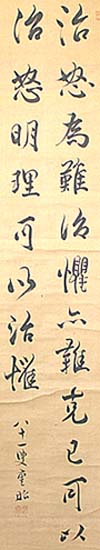 治怒為難治懼亦難克己可以
治怒明理可以治懼
八十一叟雲照